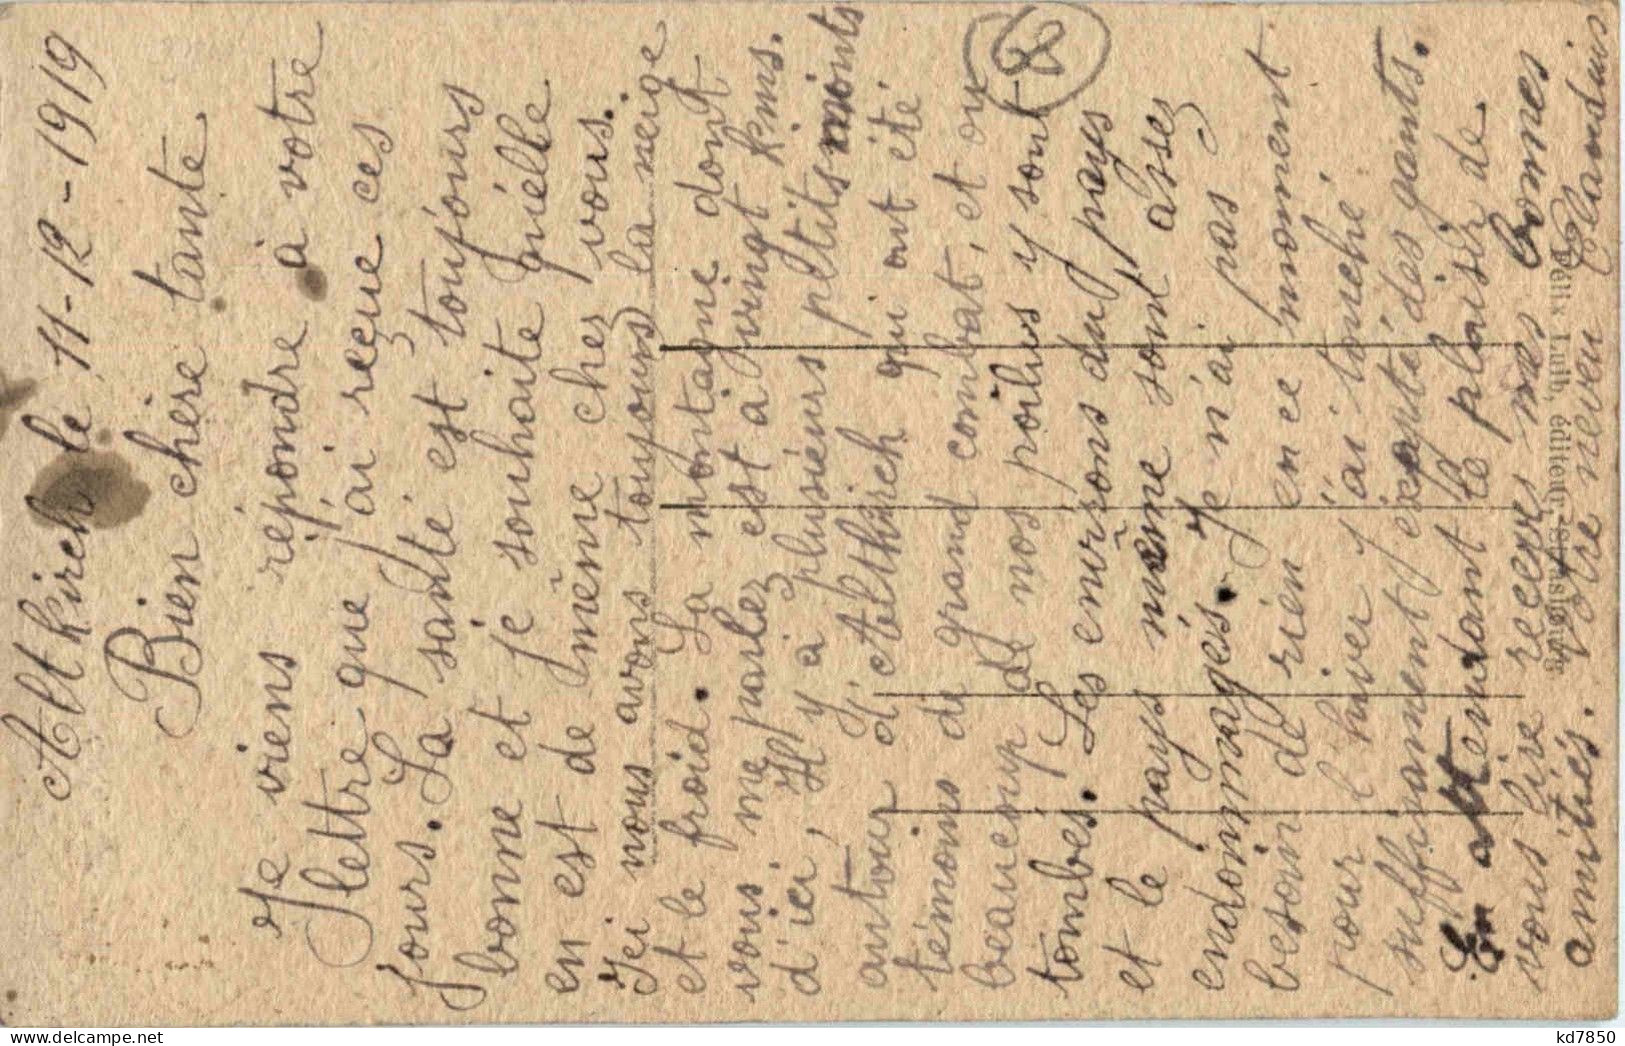 Altkirch le 11-12-1919
Bien chère tante
Je viens répondre à votre
lettre que j'ai reçue ces
jours. La santé est toujours
bonne et je souhaite qu'elle
en est de même chez vous.
Ici nous avons toujours la neige
et le froid. La montagne dont
vous me parlez est à vingt kms.
d'ici, Il y à plusiéurs petits monts
autour d'Altkirch qui ont été
témoins de grand combat, et ou
beaucoup de nos poilus y sont
tombés. Les environs du pays
et le pays même sont assez
endommagés. Je n'ai pas
besoin de rien en ce moment
pour l'hiver j'ai touché
suffisament éxapté des gants.
En attendant le plaisir de
vous lire recevez mes bonnes
amitiés. Votre neveu Claudius
80
Félix Luib, éditeur, Strasbourg
kd7850